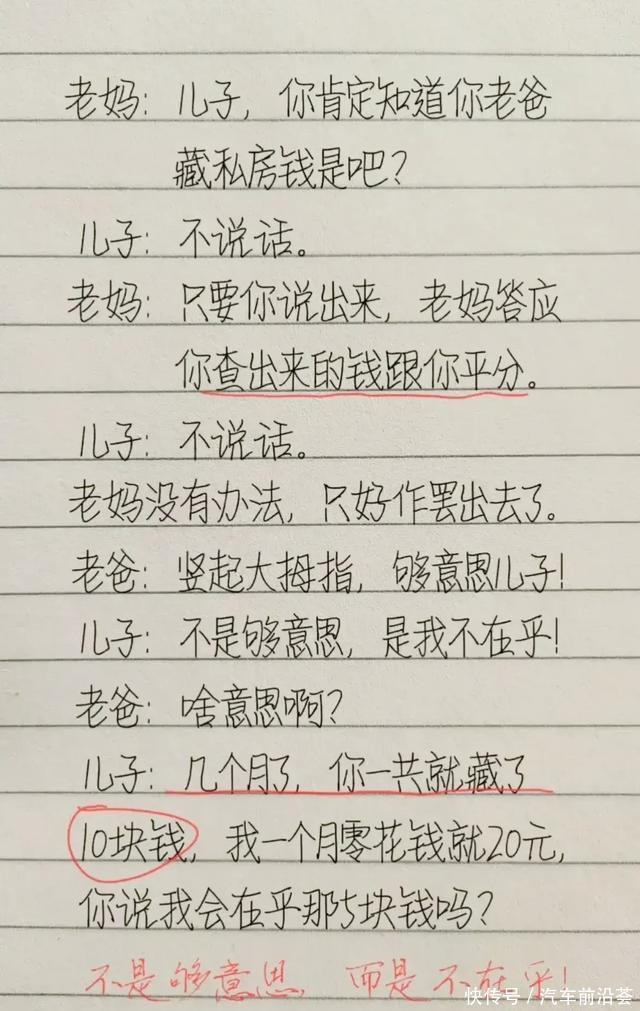 老妈：儿子，你肯定知道你老爸
藏私房钱是吧？
儿子：不说话。
老妈：只要你说出来，老妈答应
你查出来的钱跟你平分。
儿子：不说话。
老妈没有办法，只好作罢出去了。
老爸：竖起大拇指，够意思儿子！
儿子：不是够意思，是我不在乎！
老爸：啥意思啊？
儿子：几个月了，你一共就藏了
10块钱，我一个月零花钱就20元，
你说我会在乎那5块钱吗？
不是够意思，而是不在乎！
快传号／汽车前沿荟